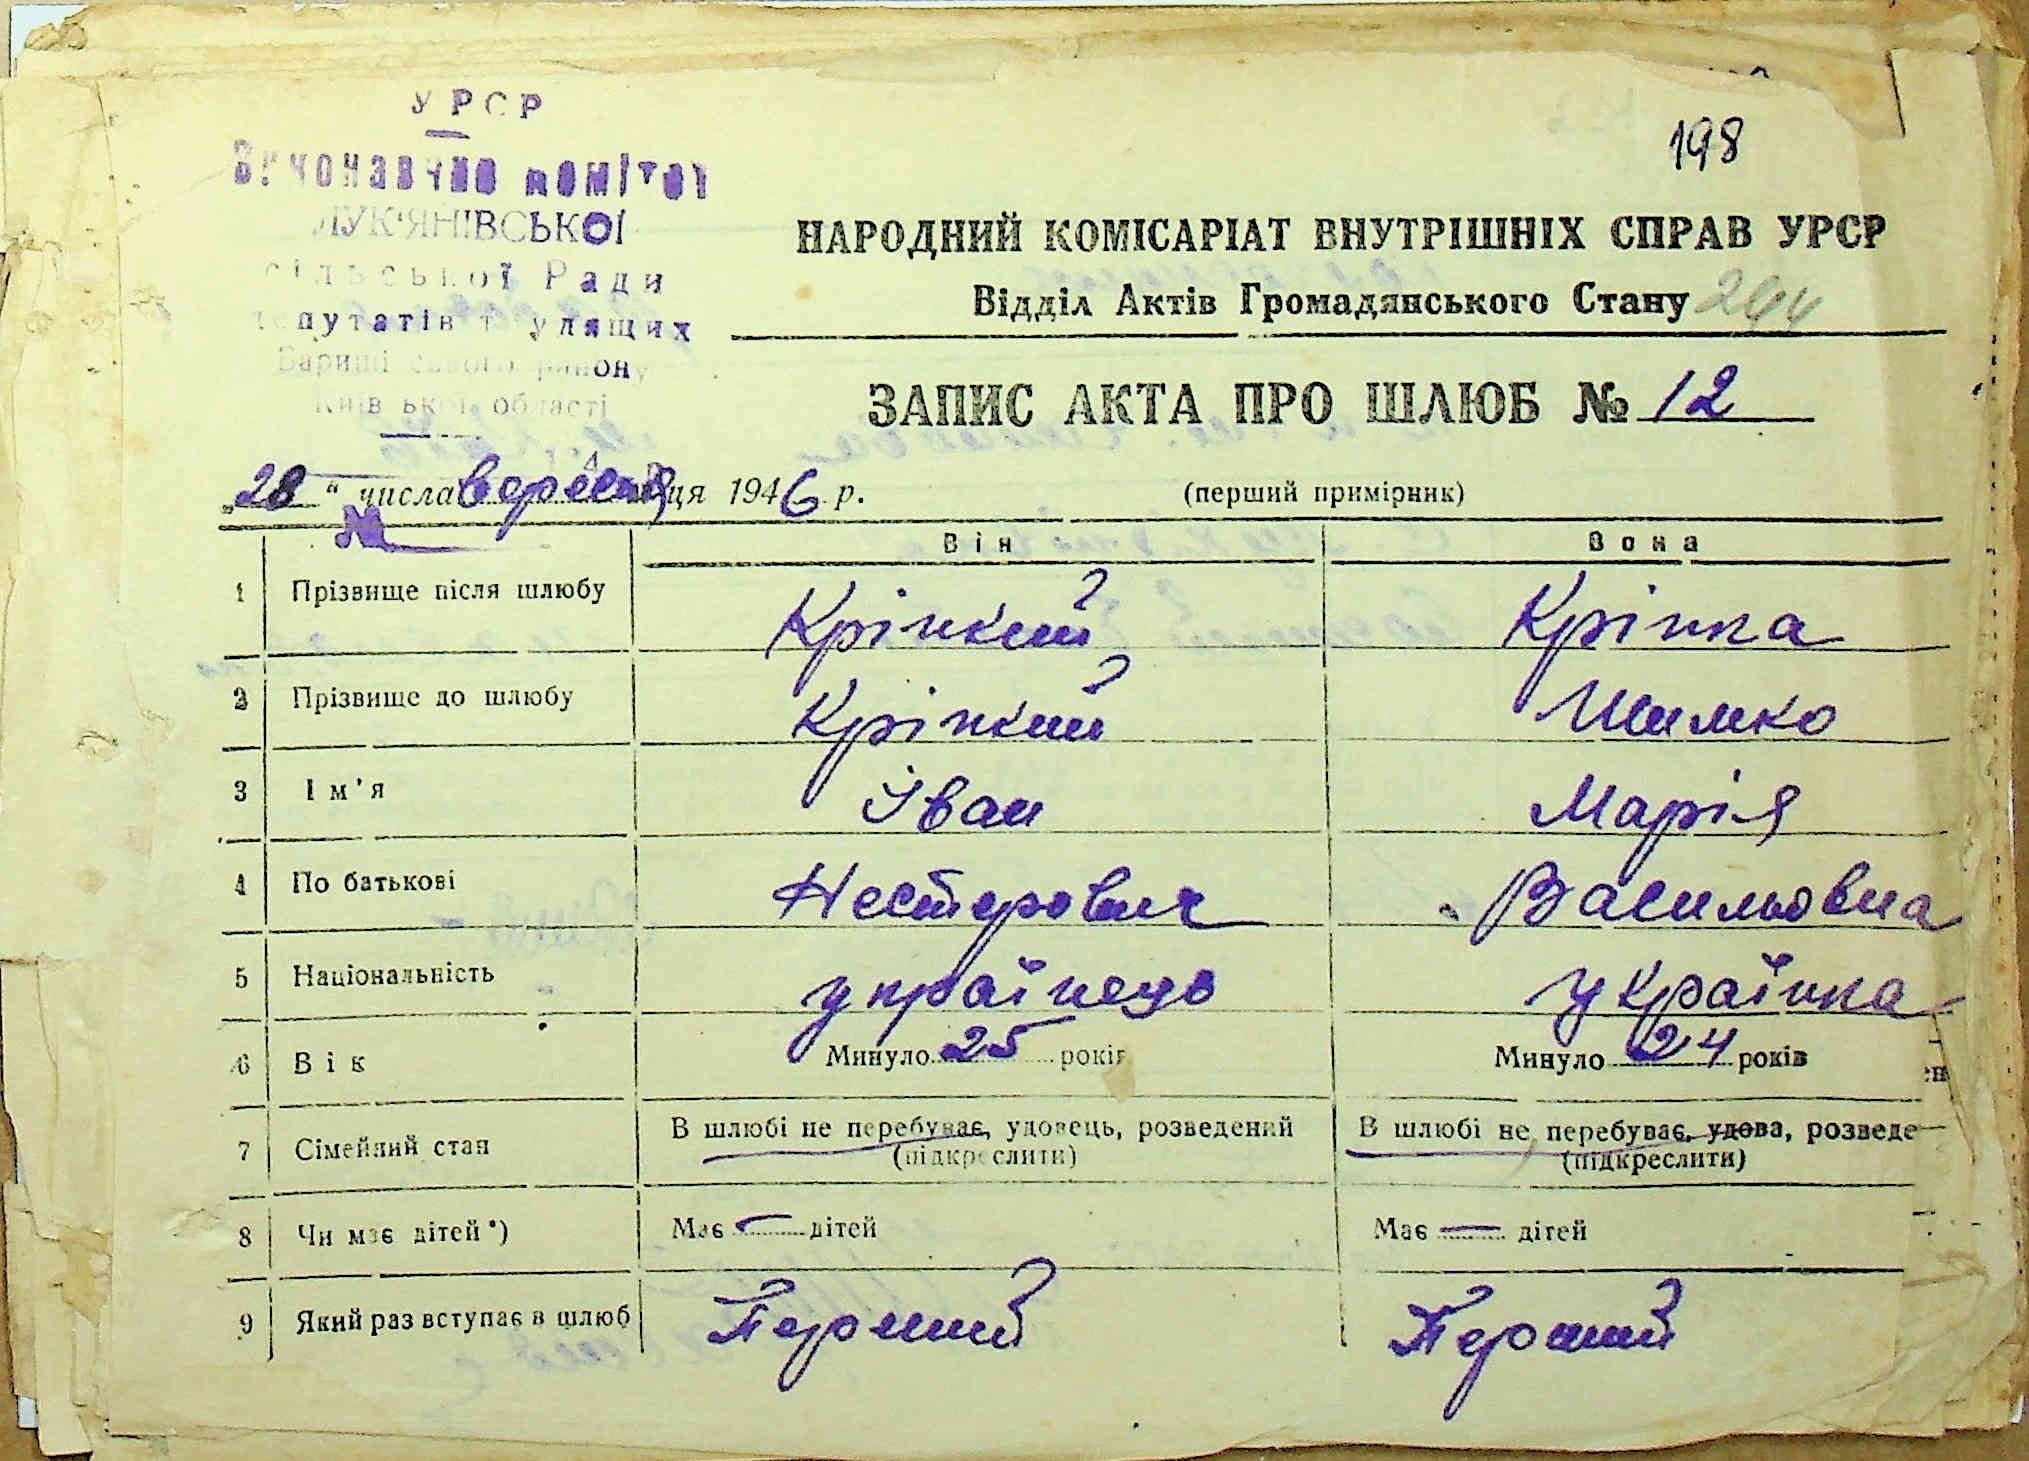 УРСР
Виконавчий комітет
ЛУК'ЯНІВСЬКОЇ
сільської Ради
депутатів трудящих
Баришівського району
Київської області
198
НАРОДНИЙ КОМІСАРІАТ ВНУТРІШНІХ СПРАВ УРСР
Відділ Актів Громадянського Стану 244
ЗАПИС АКТА ПРО ШЛЮБ № 12
„28“ числа вересня м-ця 1946 р. (перший примірник)
№
Він Вона
1 Прізвище після шлюбу Кріпкий Кріпка
2 Прізвище до шлюбу Кріпкий Шимко
3 Ім'я Іван Марія
4 По батькові Несторович Васильовна
5 Національність українець українка
6 Вік Минуло 25 років Минуло 24 років
7 Сімейний стан В шлюбі не перебуває, удовець, розведений В шлюбі не перебуває, удова, розведе
(підкреслити) (підкреслити)
8 Чи має дітей*) Має — дітей Має — дітей
9 Який раз вступає в шлюб Перший Перший